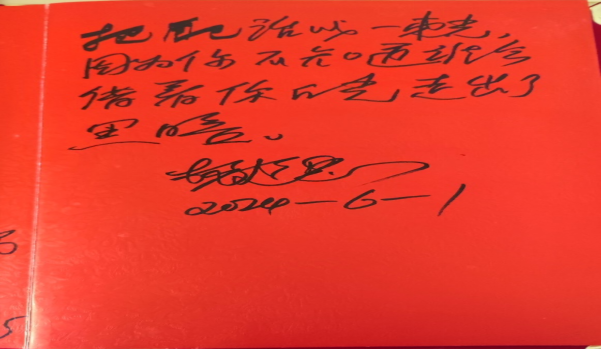 把自己活成一束光，
因为你不知道谁会
借着你的光走出了
黑暗。
2024-6-1